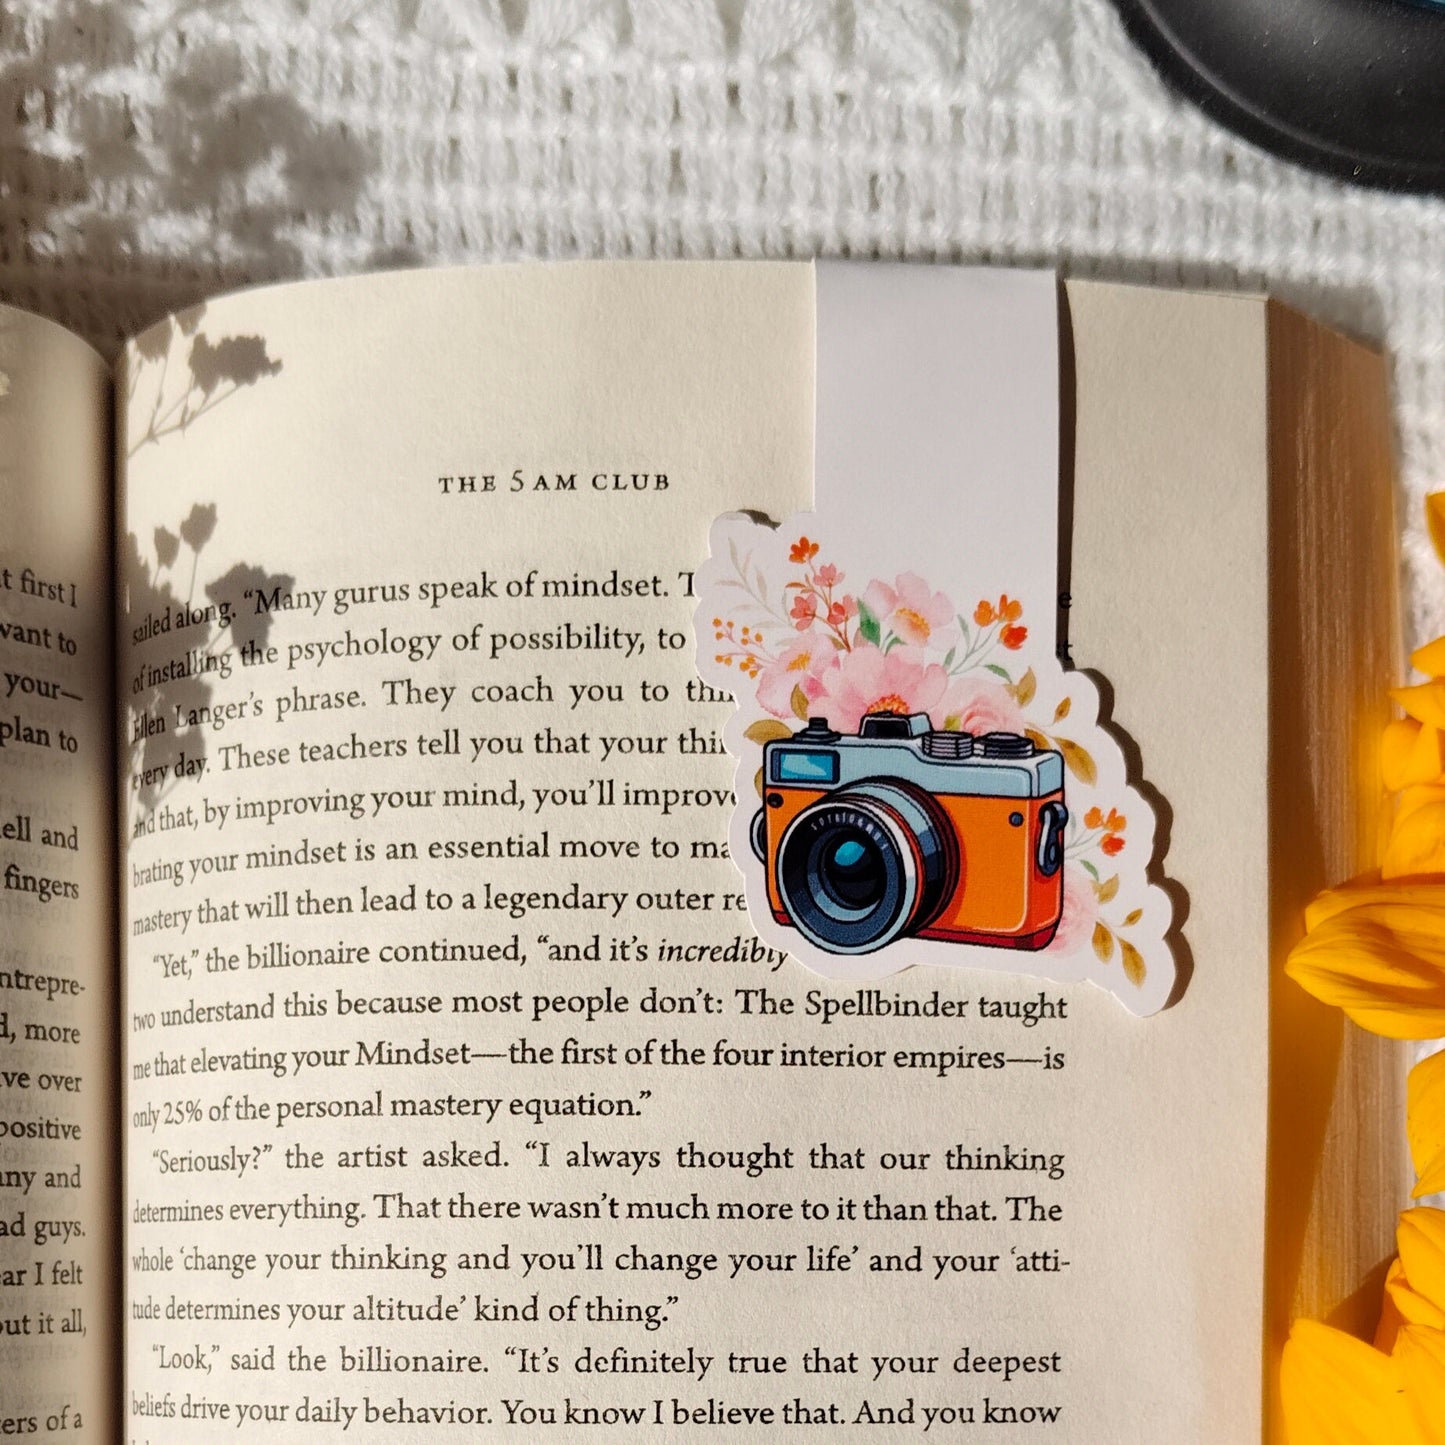 t first I
want to
your—
plan to
ell and
fingers
ntrepre-
d, more
ve over
positive
ny and
ad guys.
ar I felt
out it all,
ers of a
THE 5 AM CLUB
sailed along. “Many gurus speak of mindset. T
of installing the psychology of possibility, to
Ellen Langer’s phrase. They coach you to thin
every day. These teachers tell you that your thi
and that, by improving your mind, you’ll improve
brating your mindset is an essential move to ma
mastery that will then lead to a legendary outer re
“Yet,” the billionaire continued, “and it’s incredibly
two understand this because most people don’t: The Spellbinder taught
me that elevating your Mindset—the first of the four interior empires—is
only 25% of the personal mastery equation.”
“Seriously?” the artist asked. “I always thought that our thinking
determines everything. That there wasn’t much more to it than that. The
whole ‘change your thinking and you’ll change your life’ and your ‘atti-
tude determines your altitude’ kind of thing.”
“Look,” said the billionaire. “It’s definitely true that your deepest
beliefs drive your daily behavior. You know I believe that. And you know